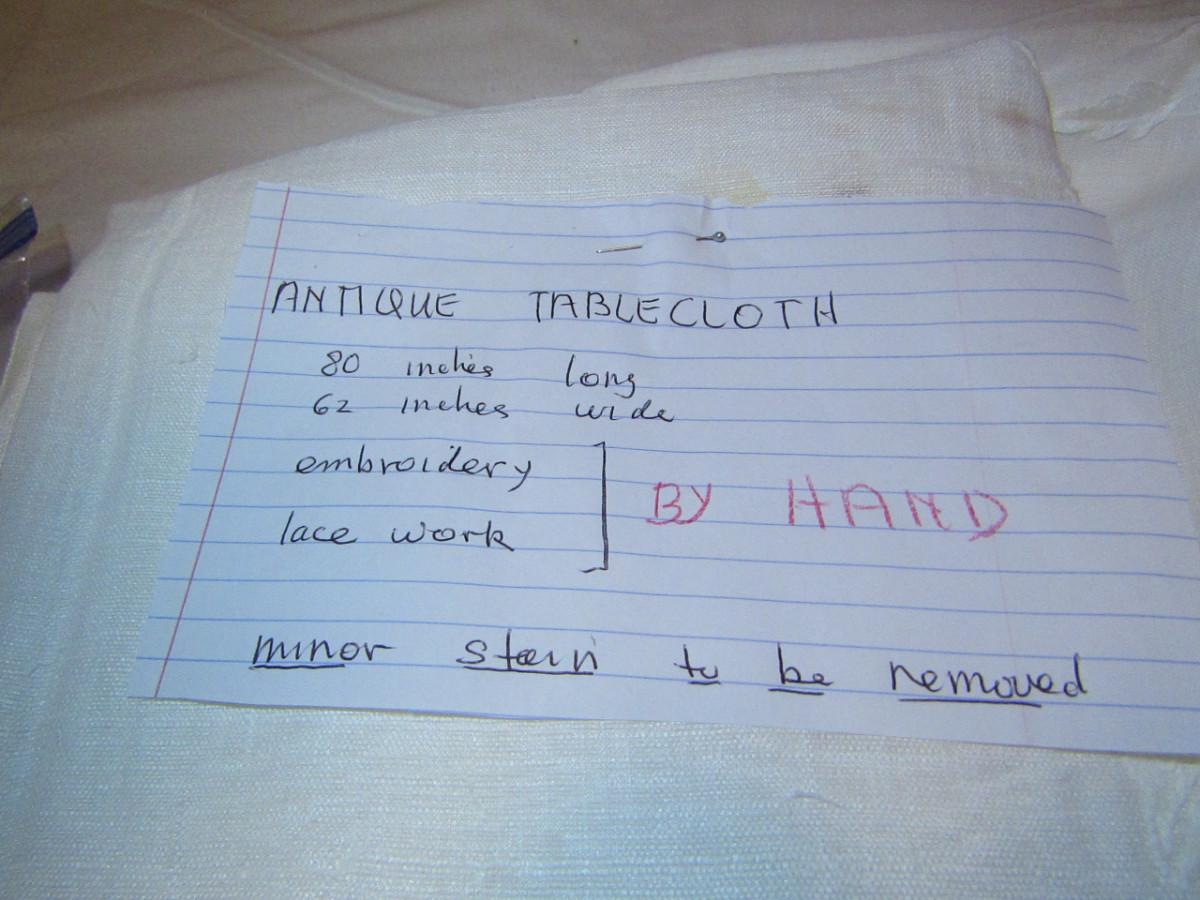 ANTIQUE TABLECLOTH
80 inches long
62 inches wide
embroidery
lace work
BY HAND
minor stain to be removed